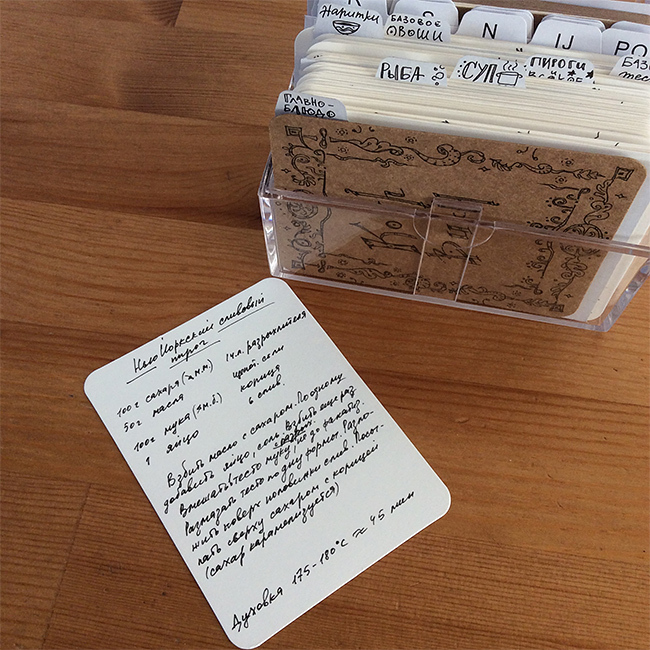 K
S
N
IJ
Напитки
БАЗОВОЕ
ОВОЩИ
РЫБА
СУП
ПИРОГИ
БАЗ
тес
ГЛАВНО-
БЛЮДО
Нью Йоркский сливовый
пирог
100 г сахара
1 ч.л. разрыхлителя
50 г масла
щепот. соли
100 г мука
корица
1 яйцо
6 слив.
Взбить масло с сахаром. По одному
добавить яйцо, соль. Взбить еще раз
Вмешать в тесто муку, но до
Размазать тесто по дну формы. Разло-
жить поверх половинки слив. Посы-
пать сверху сахаром с корицей
(сахар карамелизуется)
Духовка 175-180°C ≈ 45 мин